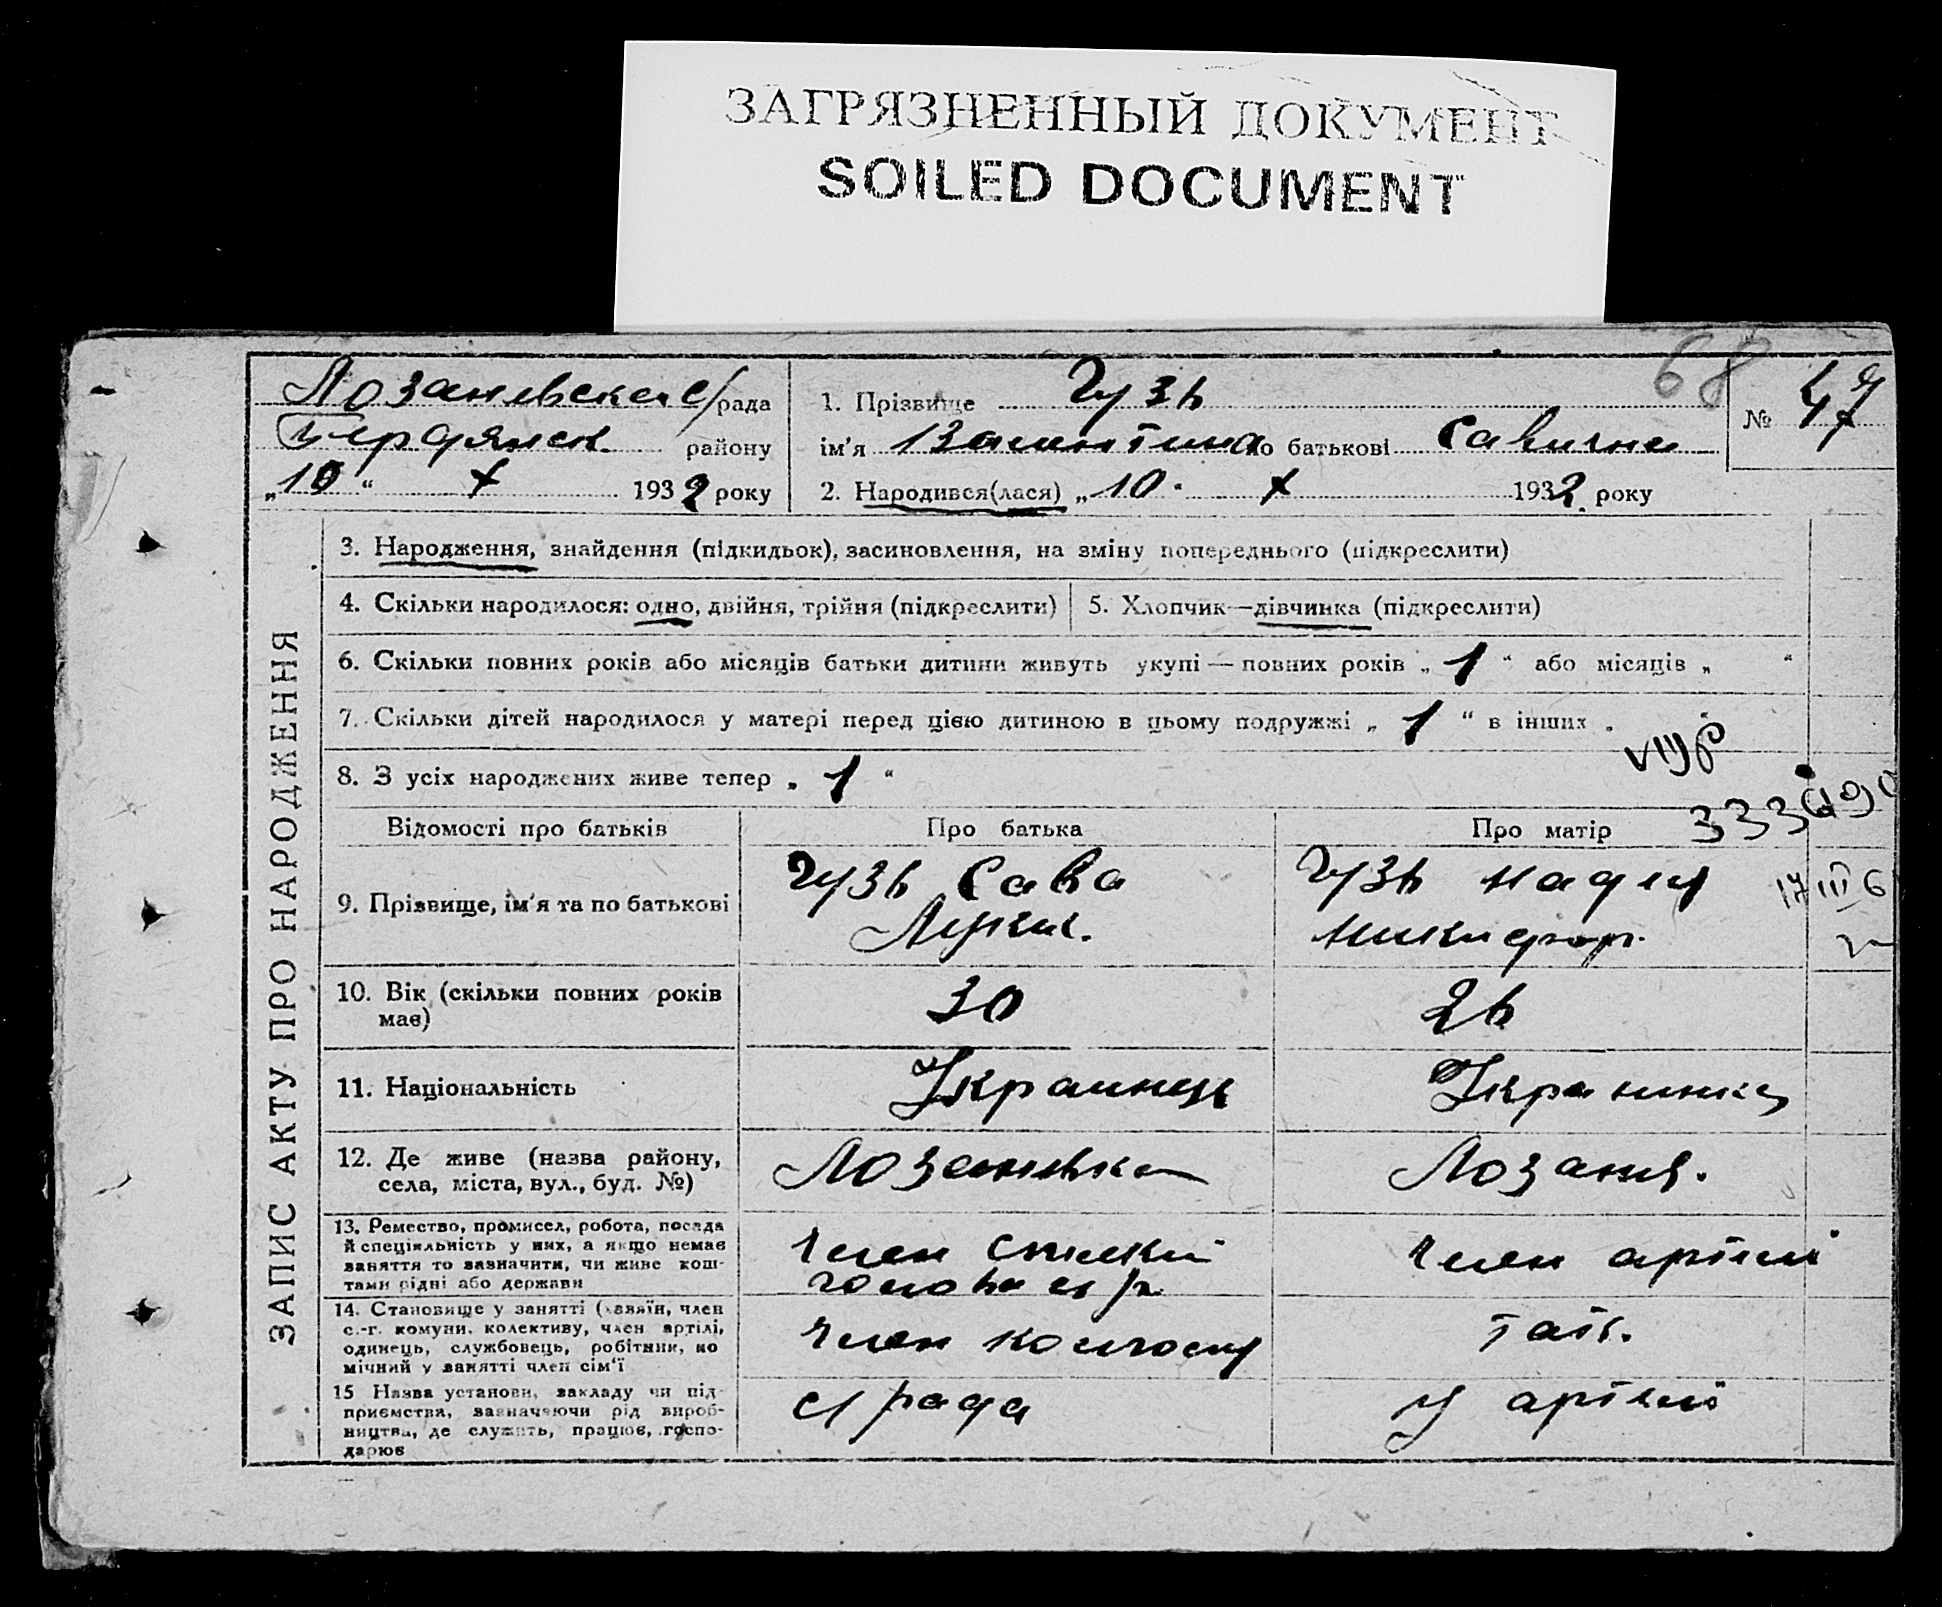 ЗАГРЯЗНЕННЫЙ ДОКУМЕНТ
SOILED DOCUMENT
68
Лозанівська с/рада
району
„10“ X 1932 року
1. Прізвище Гузь
ім'я Валентина по батькові Савична
2. Народився(лася) „10. X 1932 року
№ 47
ЗАПИС АКТУ ПРО НАРОДЖЕННЯ
3. Народження, знайдення (підкидьок), засиновлення, на зміну попереднього (підкреслити)
4. Скільки народилося: одно, двійня, трійня (підкреслити)
5. Хлопчик—дівчинка (підкреслити)
6. Скільки повних років або місяців батьки дитини живуть укупі — повних років „ 1 “ або місяців „ “
7. Скільки дітей народилося у матері перед цією дитиною в цьому подружжі „ 1 “ в інших „ “
8. З усіх народжених живе тепер „ 1 “
Відомості про батьків
Про батька
Про матір
9. Прізвище, ім'я та по батькові
Гузь Сава
Гузь Надия
Никифор.
17 III 6
10. Вік (скільки повних років
має)
30
26
11. Національність
Украинець
Украинка
12. Де живе (назва району,
села, міста, вул., буд. №)
Лозанівка
Лозанів.
13. Ремество, промисел, робота, посада
й спеціяльність у них, а якщо немає
заняття то зазначити, чи живе кош-
тами рідні або держави
Член спилки
голова с/р
Член артілі
14. Становище у занятті (хазяїн, член
с.-г. комуни, колективу, член артілі,
одинець, службовець, робітник, по
мічний у занятті член сім'ї
Член колгоспу
так.
15 Назва установи, закладу чи під-
приємства, зазначаючи рід вироб-
ництва, де служить, працює, госпо-
дарює
с/рада
У артілі